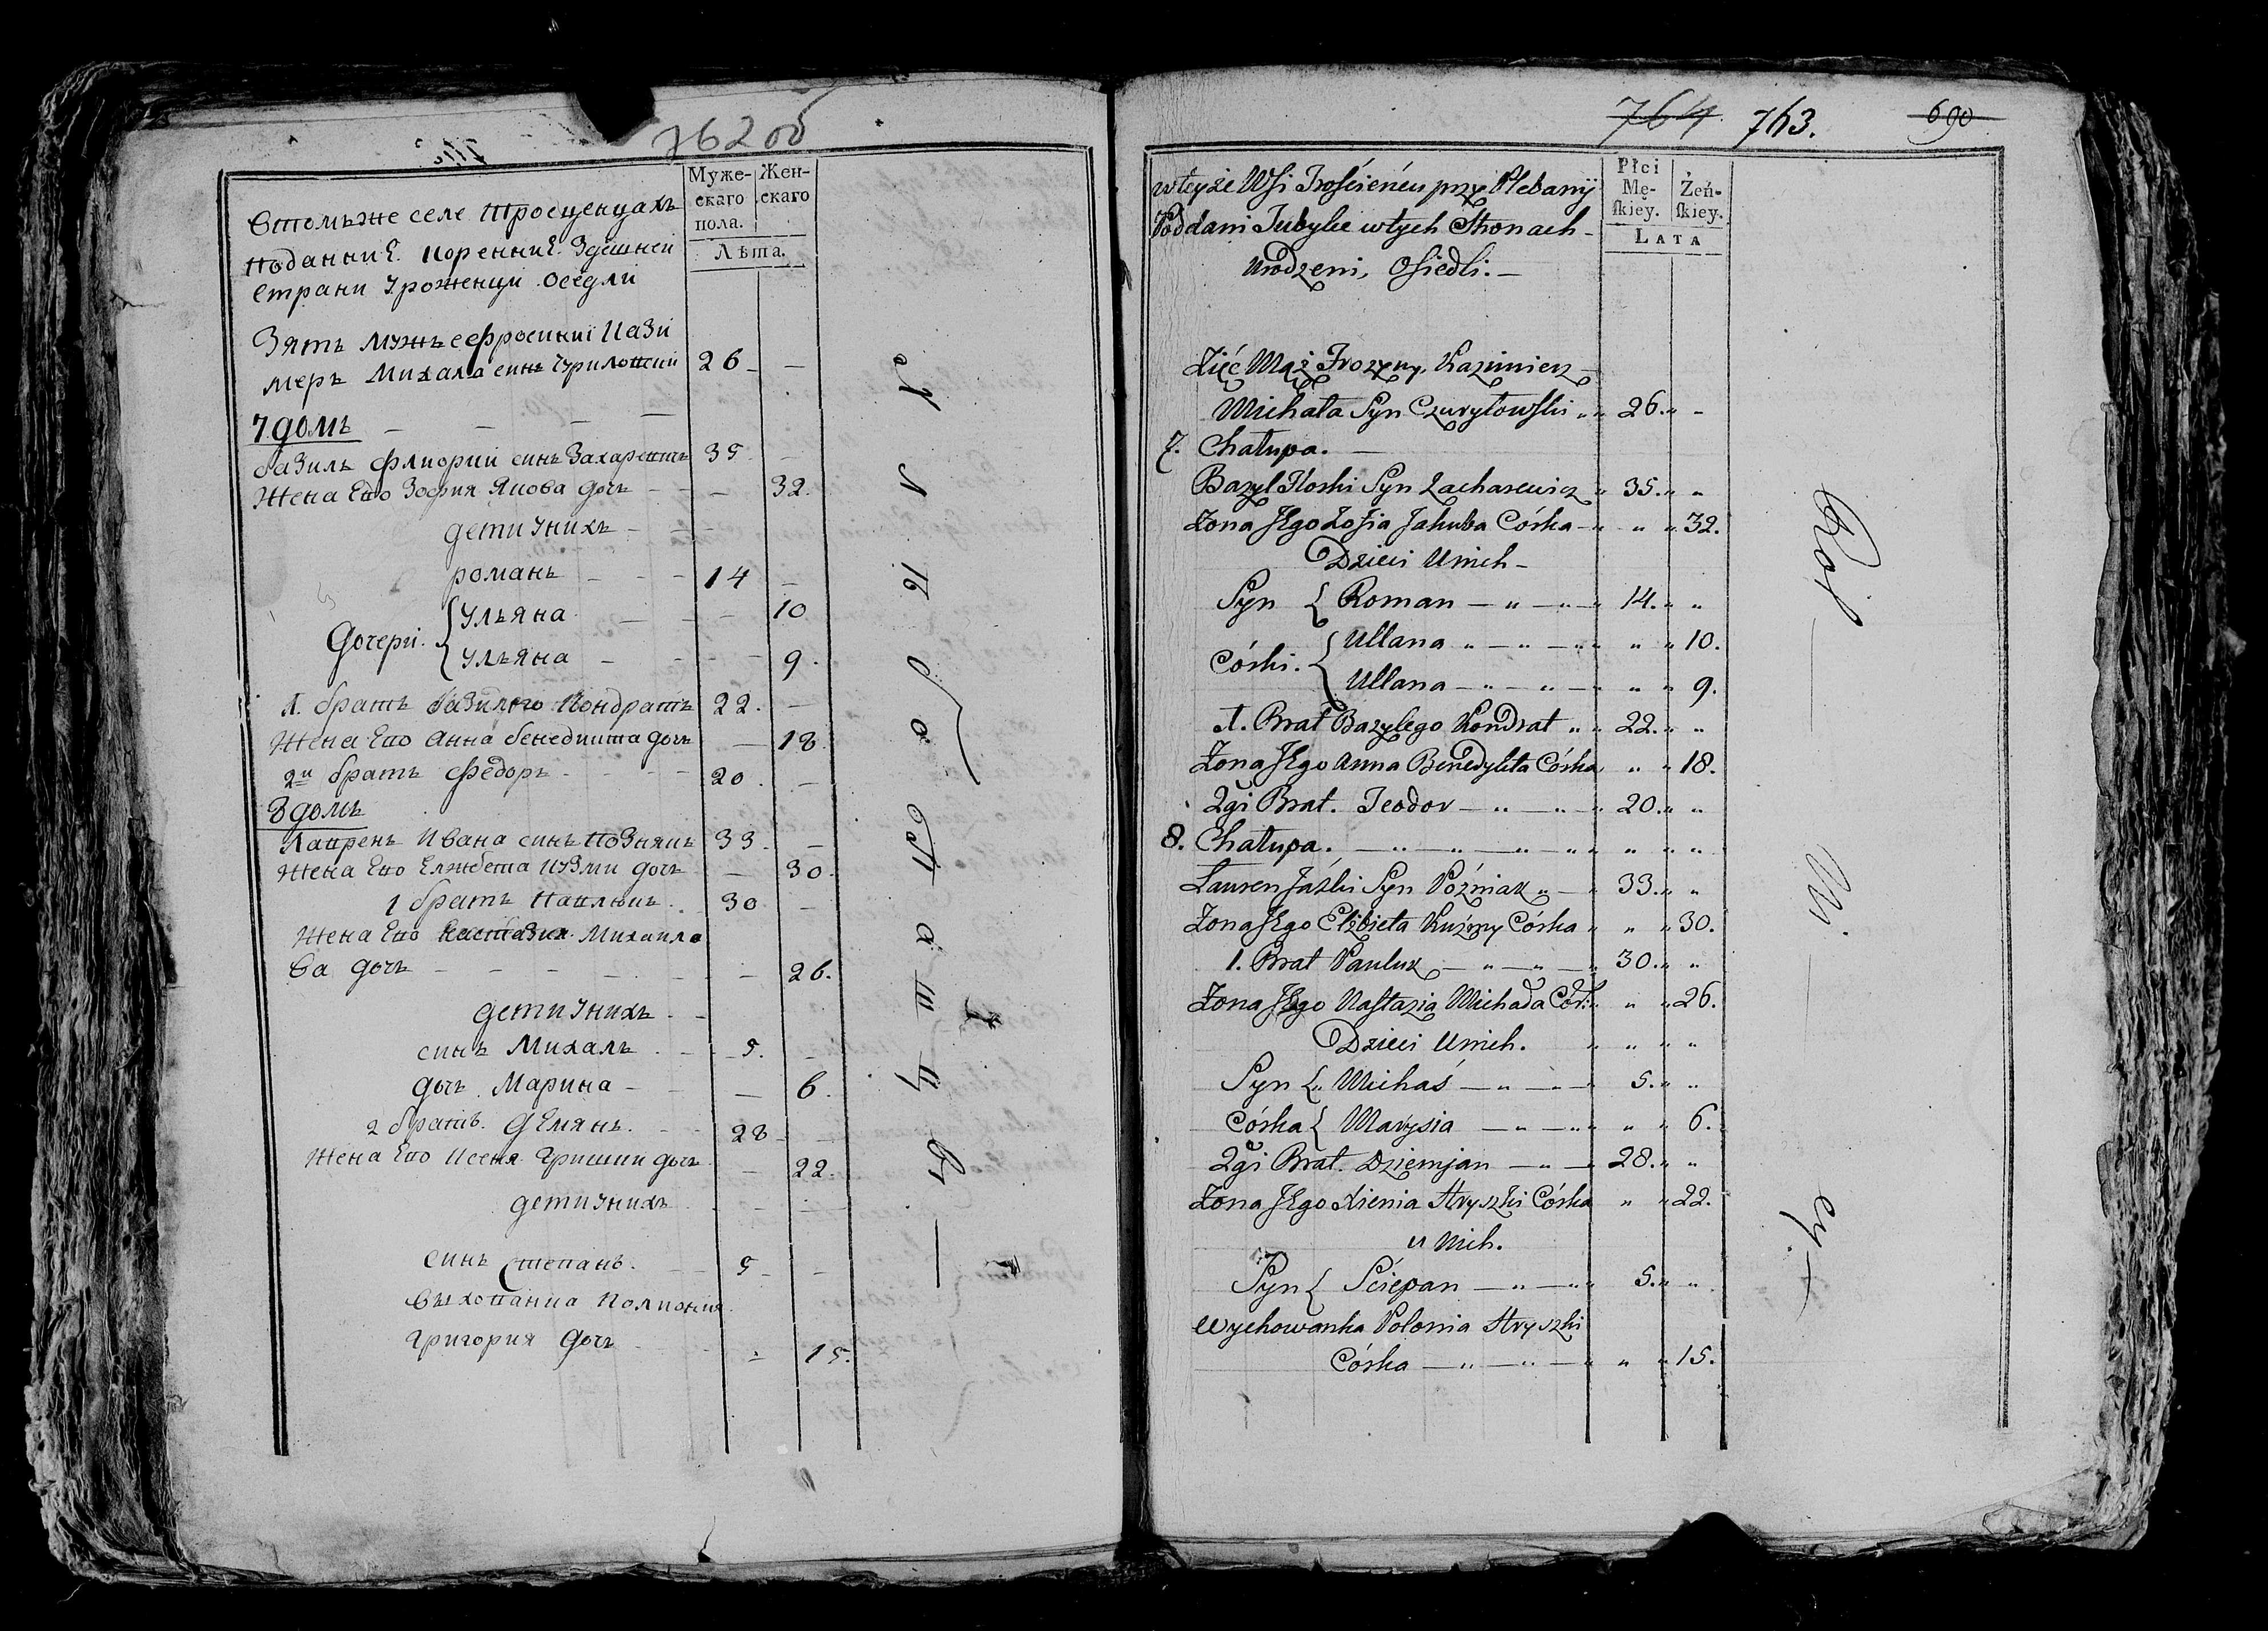 76200
Муже-
скаго
пола.
Жен-
скаго
Лѣта.
Втомъже селе Тросценцахъ
поданниЕ. коренниЕ. Здешней
страни Уроженци оседли
Зять Мужъ еФросинии Кази
меръ Михала синъ Чуриловский 26 —
7 домъ — — —
базиль Флиорки синъ Захаревичъ 35. —
Жена Его Зофия Якова дочь — — — 32.
дети Унихъ — —
романъ — — — 14 —
Дочери. { Ульяна — — — 10
Ульяна — — — 9.
1. братъ базилего Кондратъ 22. —
Жена Его Анна бенедикта дочь — 18.
2й братъ Федоръ — — — 20. —
8 домъ
Лавренъ Ивана синъ Познякъ 33. —
Жена Его Елжбета Кузми дочь — 30.
1 братъ Павлюкъ. 30 —
Жена Его Настазия Михайло
ва дочь — — — — — 26.
дети Унихъ — —
синъ Михалъ — — 5. —
дочь Марина — — — 6.
2 братъ. дЕмянъ. — 28 —
Жена Его Ксеня Гришки дочь — 22.
дети Унихъ — — —
синъ степанъ. — 5 — —
выхованка Полиония
Григория дочь — — 15.
Хлѣбопашцы —
764 763. 690
Płci
Mę-
skiey.
Żeń-
skiey.
LATA
w teyże Wsi Trościeńcu przy Plebanÿ
Poddani Tubylce w tych Stronach —
Urodzeni, Osiedli. —
Zięć Mąż Frozyny, Kazimierz —
Michała Syn Czuryłowski „ „ 26. „ —
7. Chałupa. —
Bazyl Floski Syn Zacharewicz „ 35. „ „
Żona JEgo Zofia Jakuba Córka — „ „ „ 32.
Dzieci Unich —
Syn { Roman — „ — „ — „ 14. „ „
Córki. { Ullana „ — „ — „ „ „ „ 10.
Ullana — „ — „ — „ „ „ 9.
1. Brat Bazylego Kondrat „ „ 22. „ „
Żona JEgo Anna Benedykta Córka „ „ 18.
2gi Brat. Teodor — „ — „ — „ 20. „ „
8. Chałupa. — „ — „ — „ — „ „ „ „ „
Lauren Jáśki Syn Poźniak „ — „ 33. „ „
Żona JEgo Elżbieta Kuźmy Córka „ „ „ 30.
1. Brat Pauluk — „ — „ — „ 30. „ „
Żona JEgo Nastazia Michała Cór: „ „ „ 26.
Dzieci Unich. „ „ „ „
Syn { „ Michaś — „ — „ — 5. „ „
Córka { Marysia — „ — „ „ „ „ 6.
2gi Brat. Dziemjan — „ — 28. „ „
Żona JEgo Xienia Hryszki Córka „ „ 22.
u Nich.
Syn { Ściepan — „ — „ „ 5. „ „
Wychowanka Polonia Hryszki
Córka — „ — „ — „ „ „ 15.
Rol — ni — cy. —